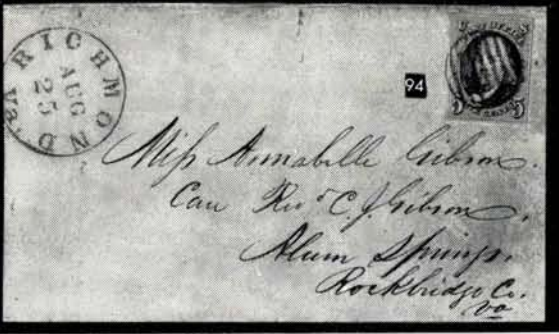 RICHMOND Va.
AUG
25
94
POST OFFICE
5 5
Miss Annabelle Gibson.
Care Revd C. J. Gibson,
Alum Springs.
Rockbridge Co.
Va